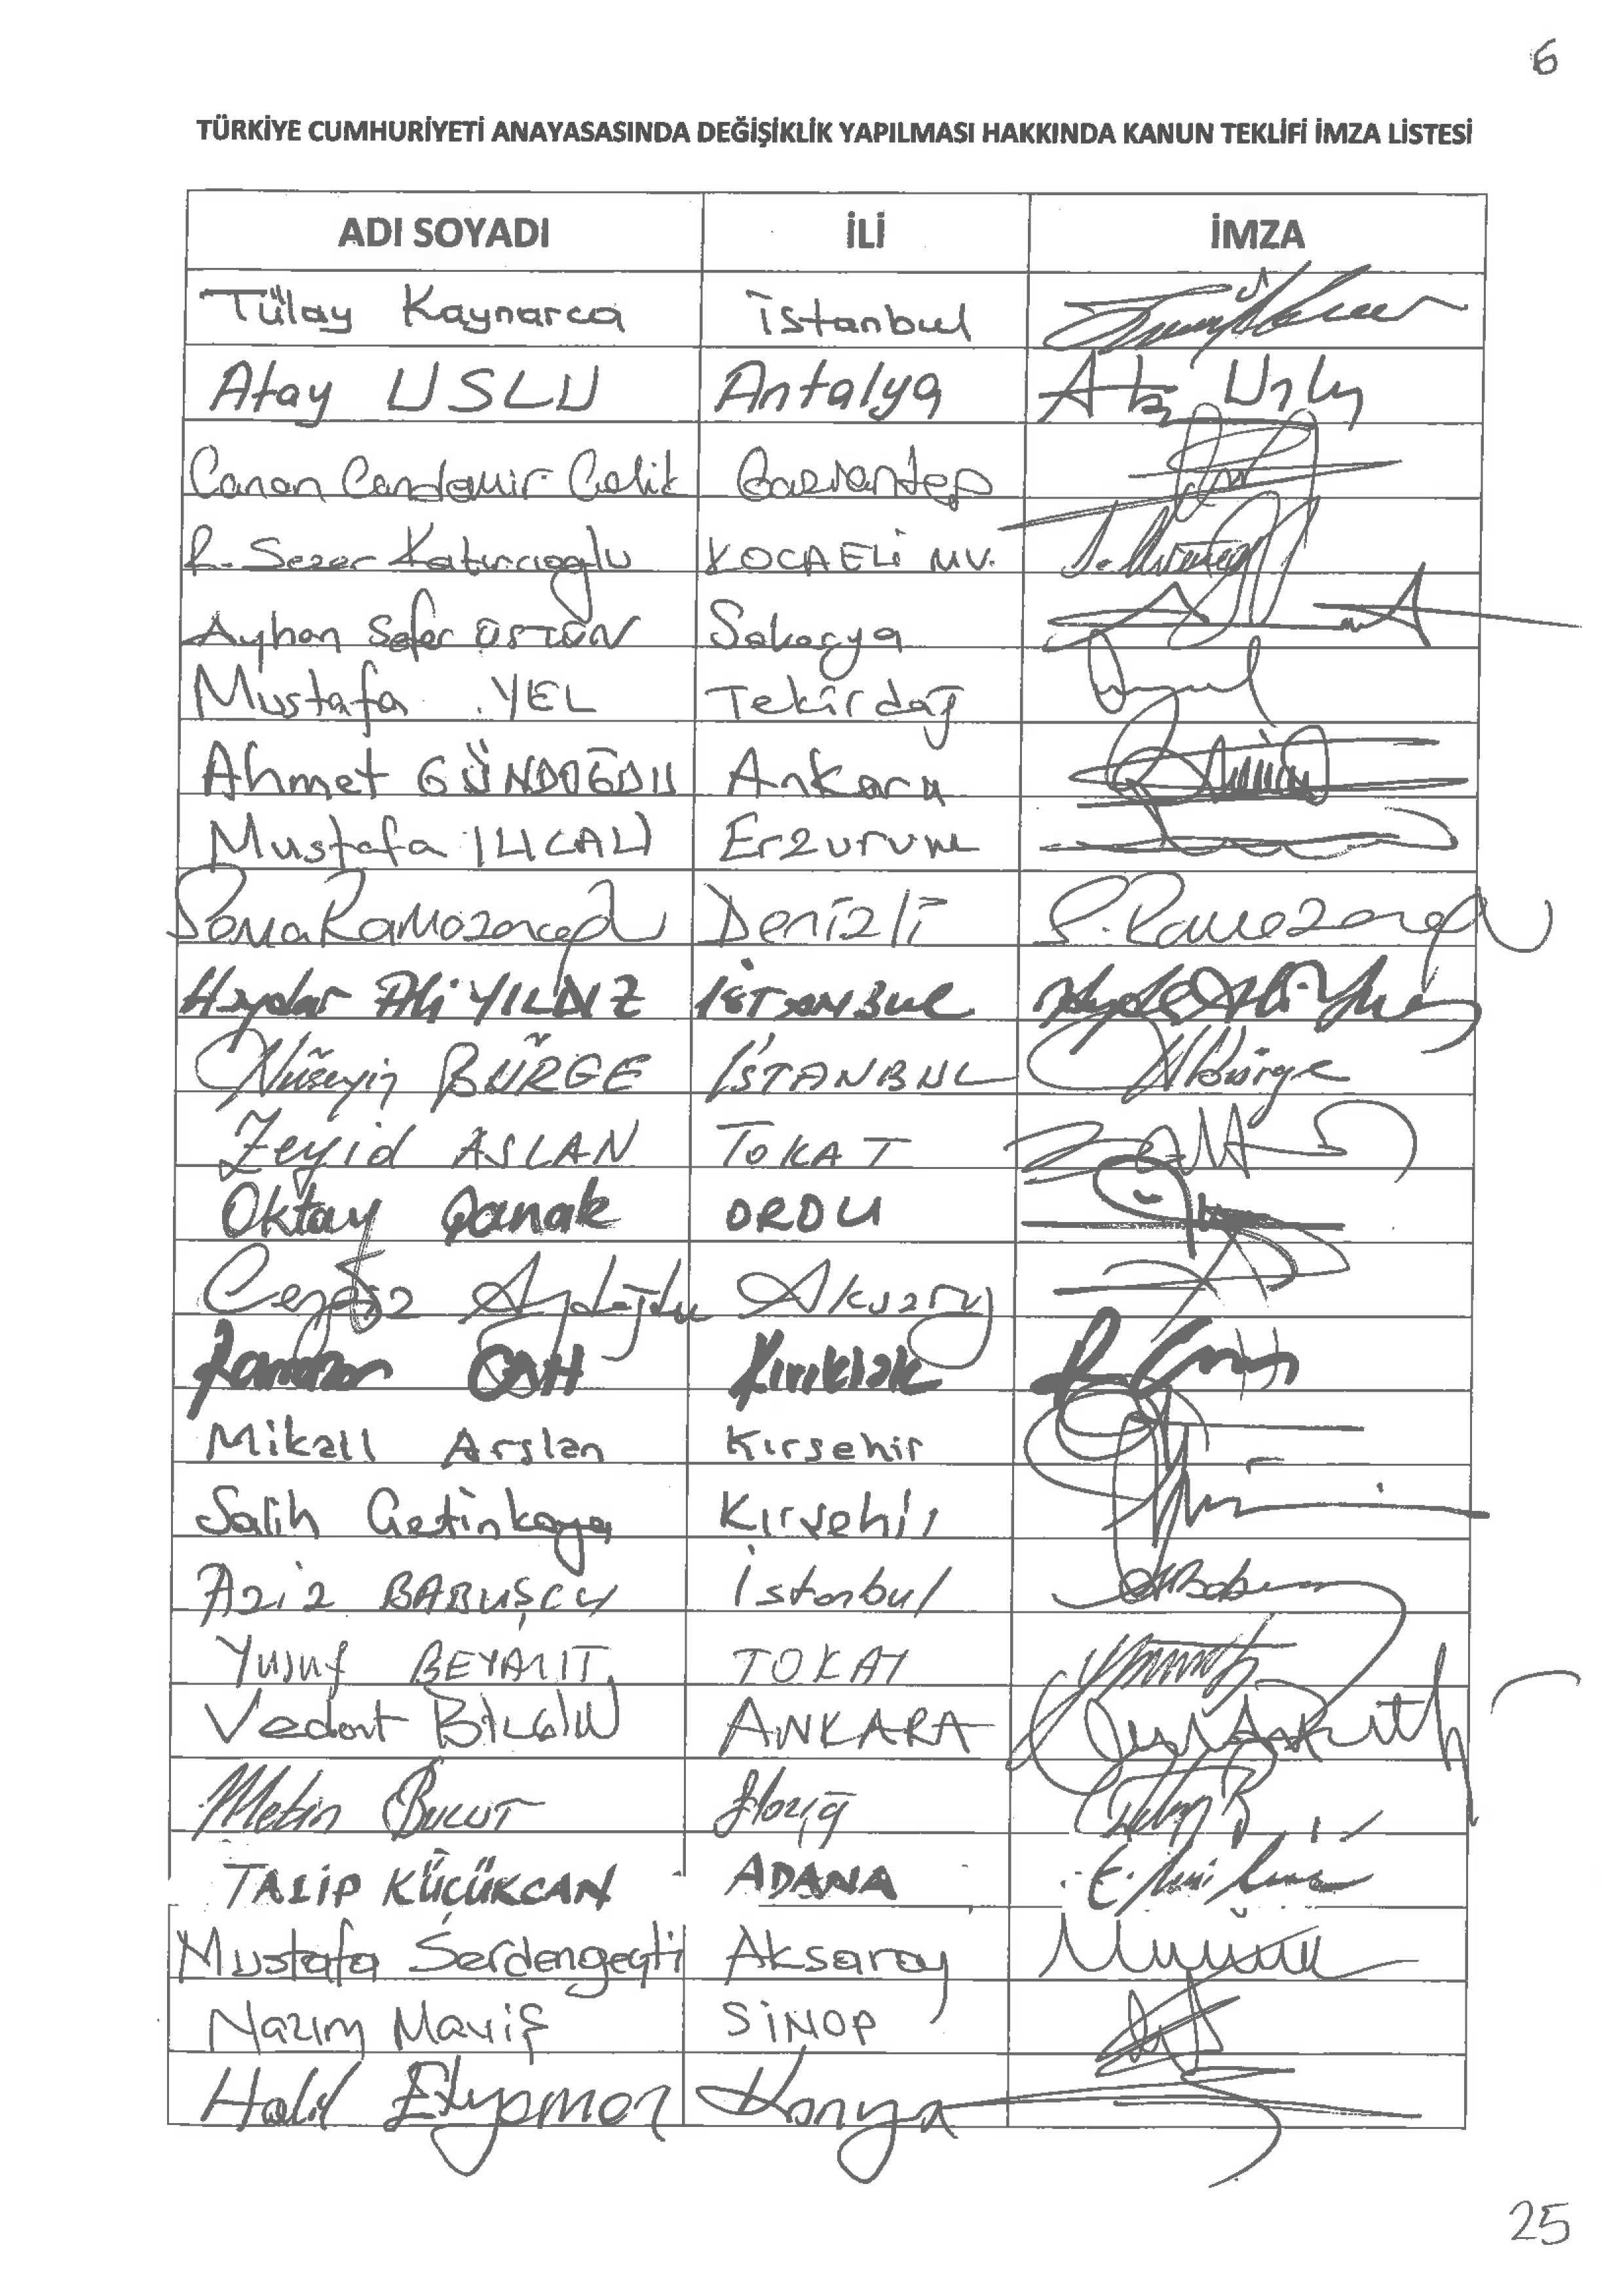 6
TÜRKİYE CUMHURİYETİ ANAYASASINDA DEĞİŞİKLİK YAPILMASI HAKKINDA KANUN TEKLİFİ İMZA LİSTESİ
ADI SOYADI İLİ İMZA
Tülay Kaynarca İstanbul
Atay USLU Antalya
Canan Candemir Çelik Gaziantep
R. Sezer Katırcıoğlu KOCAELİ MV.
Ayhan Sefer ÜSTÜN Sakarya
Mustafa YEL Tekirdağ
Ahmet GÜNDOĞDU Ankara
Mustafa ILICALI Erzurum
Sema Ramazanoğlu Denizli S. Ramazanoğlu
Haydar Ali YILDIZ İSTANBUL
Hüseyin BÜRGE İSTANBUL HBürge
Zeyid ASLAN TOKAT
Oktay Çanak ORDU
Cengiz Aydoğdu Aksaray
Ramazan CAN Kırıkkale
Mikail Arslan Kırşehir
Salih Çetinkaya Kırşehir
Aziz BABUŞCU İstanbul
Yusuf BEYAZIT TOKAT
Vedat BİLGİN ANKARA
Metin BULUT Elazığ
TALİP KÜÇÜKCAN ADANA
Mustafa Serdengeçti Aksaray
Nazım Maviş SİNOP
Halil Etyemez Konya
25